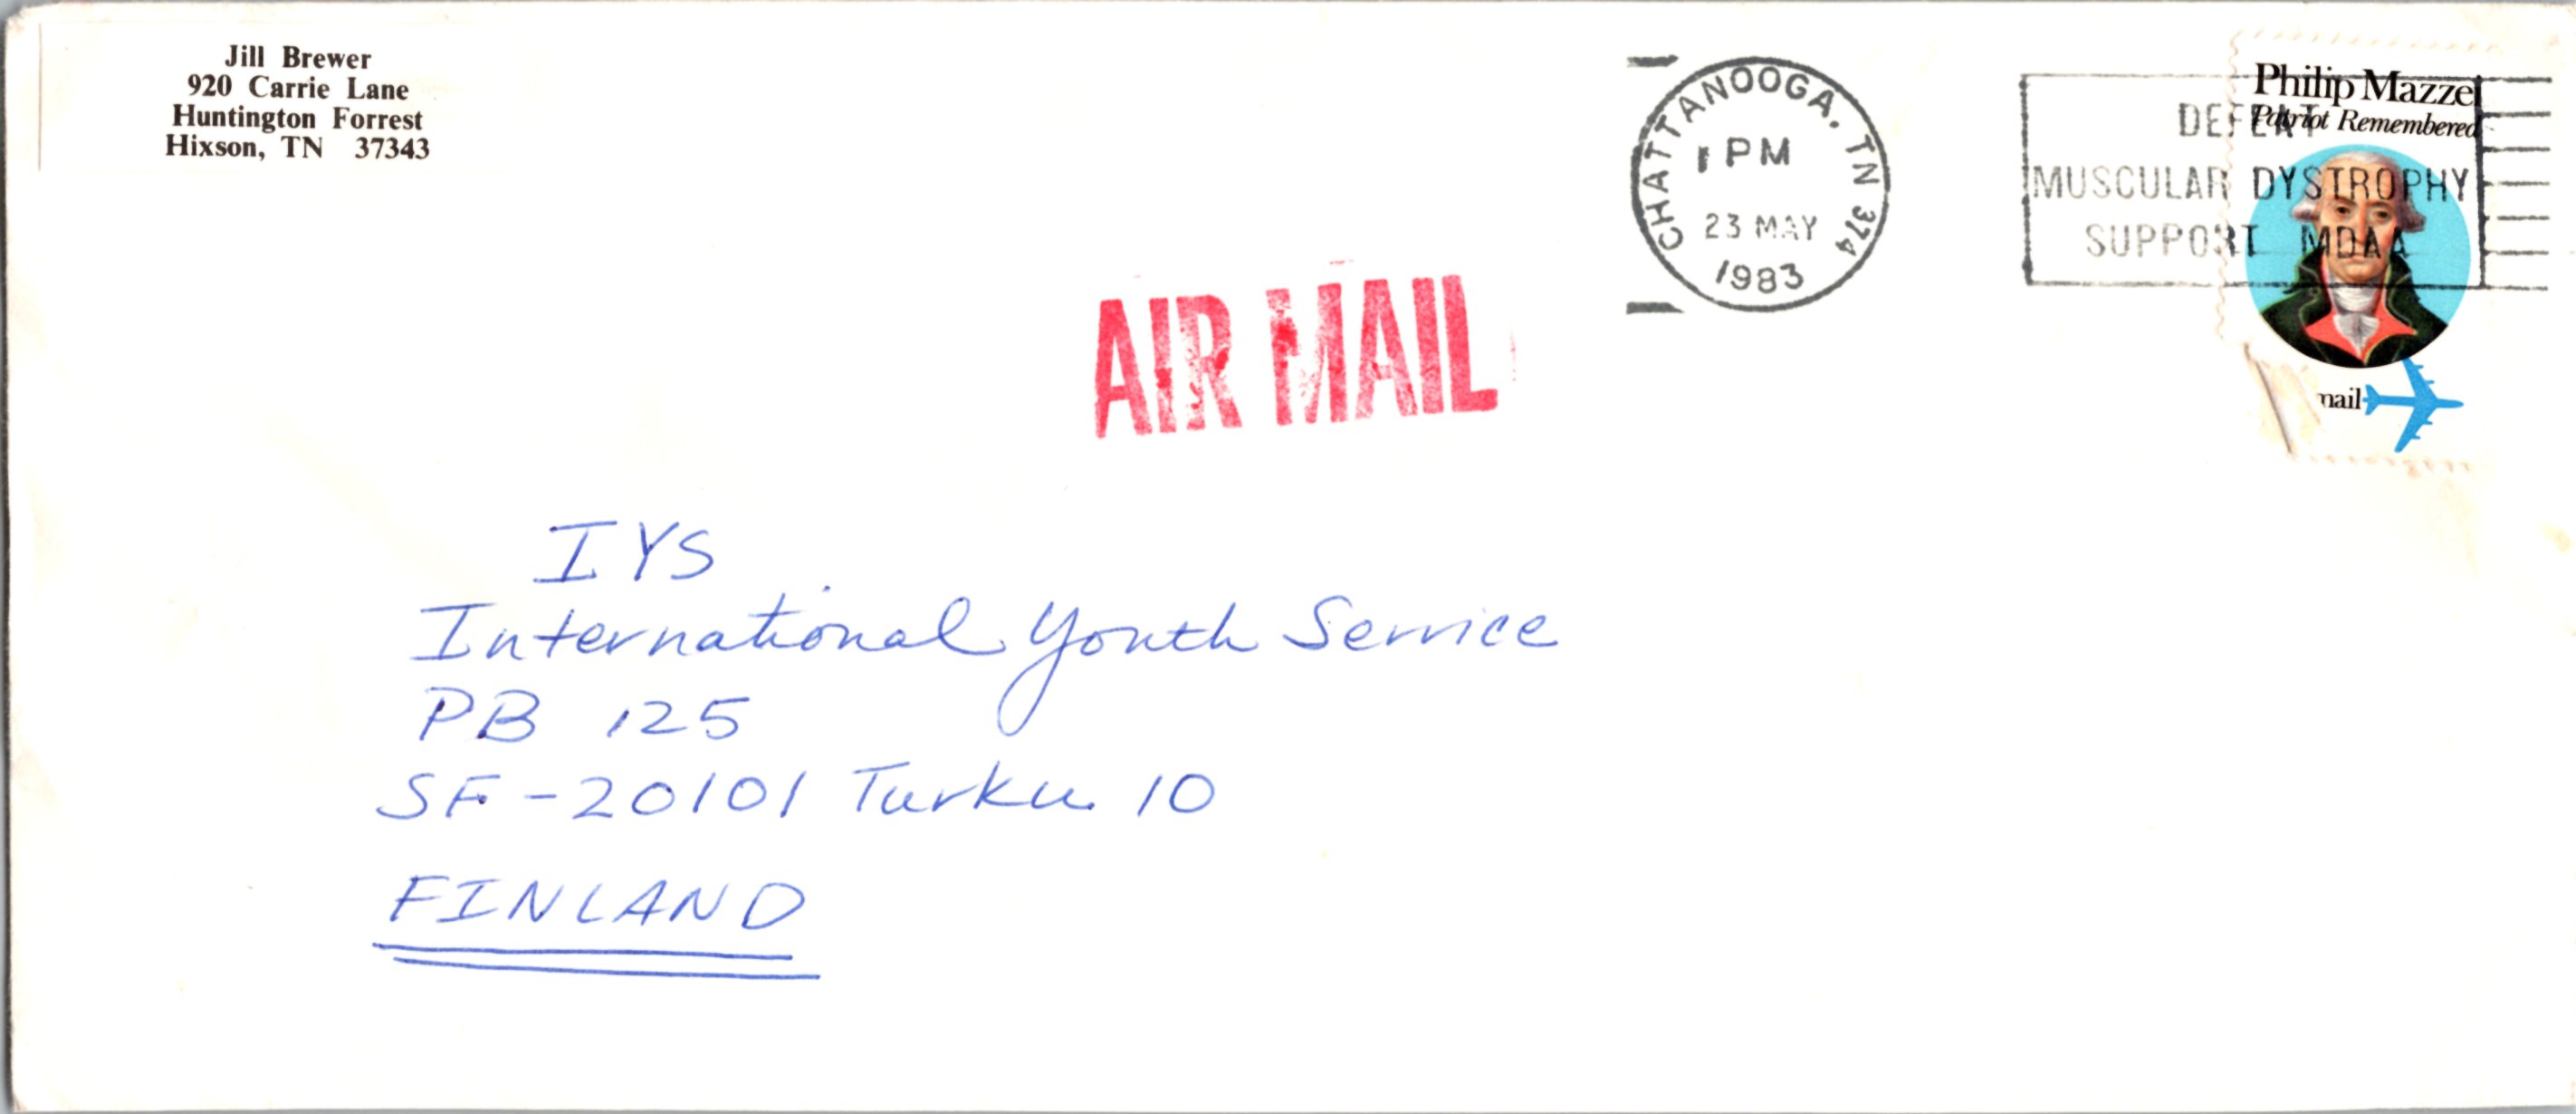 Jill Brewer
920 Carrie Lane
Huntington Forrest
Hixson, TN 37343
CHATTANOOGA, TN 374
PM
23 MAY
1983
DEFEAT
MUSCULAR DYSTROPHY
SUPPORT MDAA
Philip Mazzei
Patriot Remembered
mail
AIR MAIL
IYS
International Youth Service
PB 125
SF-20101 Turku 10
FINLAND